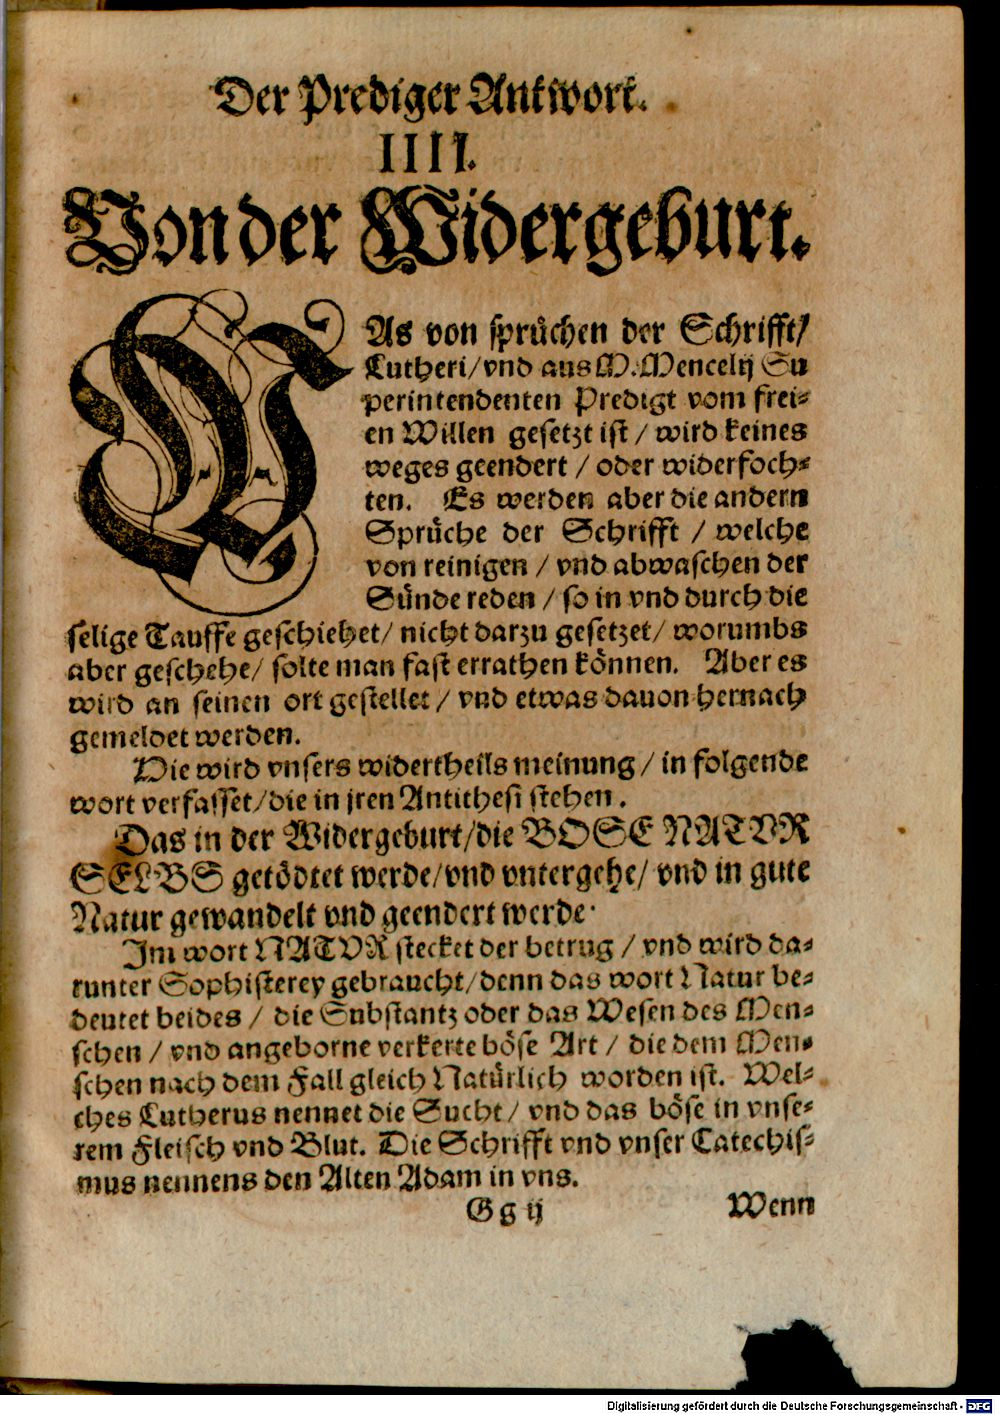 Der Prediger Antwort.
IIII.
Von der Widergeburt.
WAs von sprüchen der Schrifft/
Lutheri/vnd aus M. Mencelij Su
perintendenten Predigt vom frei-
en Willen gesetzt ist / wird keines
weges geendert / oder widerfoch-
ten. Es werden aber die andern
Sprüche der Schrifft / welche
von reinigen / vnd abwaschen der
Sünde reden / so in vnd durch die
selige Tauffe geschiehet/ nicht darzu gesetzet/ worumbs
aber geschehe/ solte man fast errathen können. Aber es
wird an seinen ort gestellet / vnd etwas dauon hernach
gemeldet werden.
Die wird vnsers widertheils meinung / in folgende
wort verfasset/die in jren Antithesi stehen.
Das in der Widergeburt/die BOSE NATVR
SELBS getödtet werde/vnd vntergehe/ vnd in gute
Natur gewandelt vnd geendert werde.
Im wort NATVR stecket der betrug / vnd wird da-
runter Sophisterey gebraucht/denn das wort Natur be-
deutet beides / die Substantz oder das Wesen des Men-
schen / vnd angeborne verkerte böse Art / die dem Men-
schen nach dem Fall gleich Natürlich worden ist. Wel-
ches Lutherus nennet die Sucht / vnd das böse in vnse-
rem Fleisch vnd Blut. Die Schrifft vnd vnser Catechis-
mus nennens den Alten Adam in vns.
Gg ij Wenn
Digitalisierung gefördert durch die Deutsche Forschungsgemeinschaft - DFG